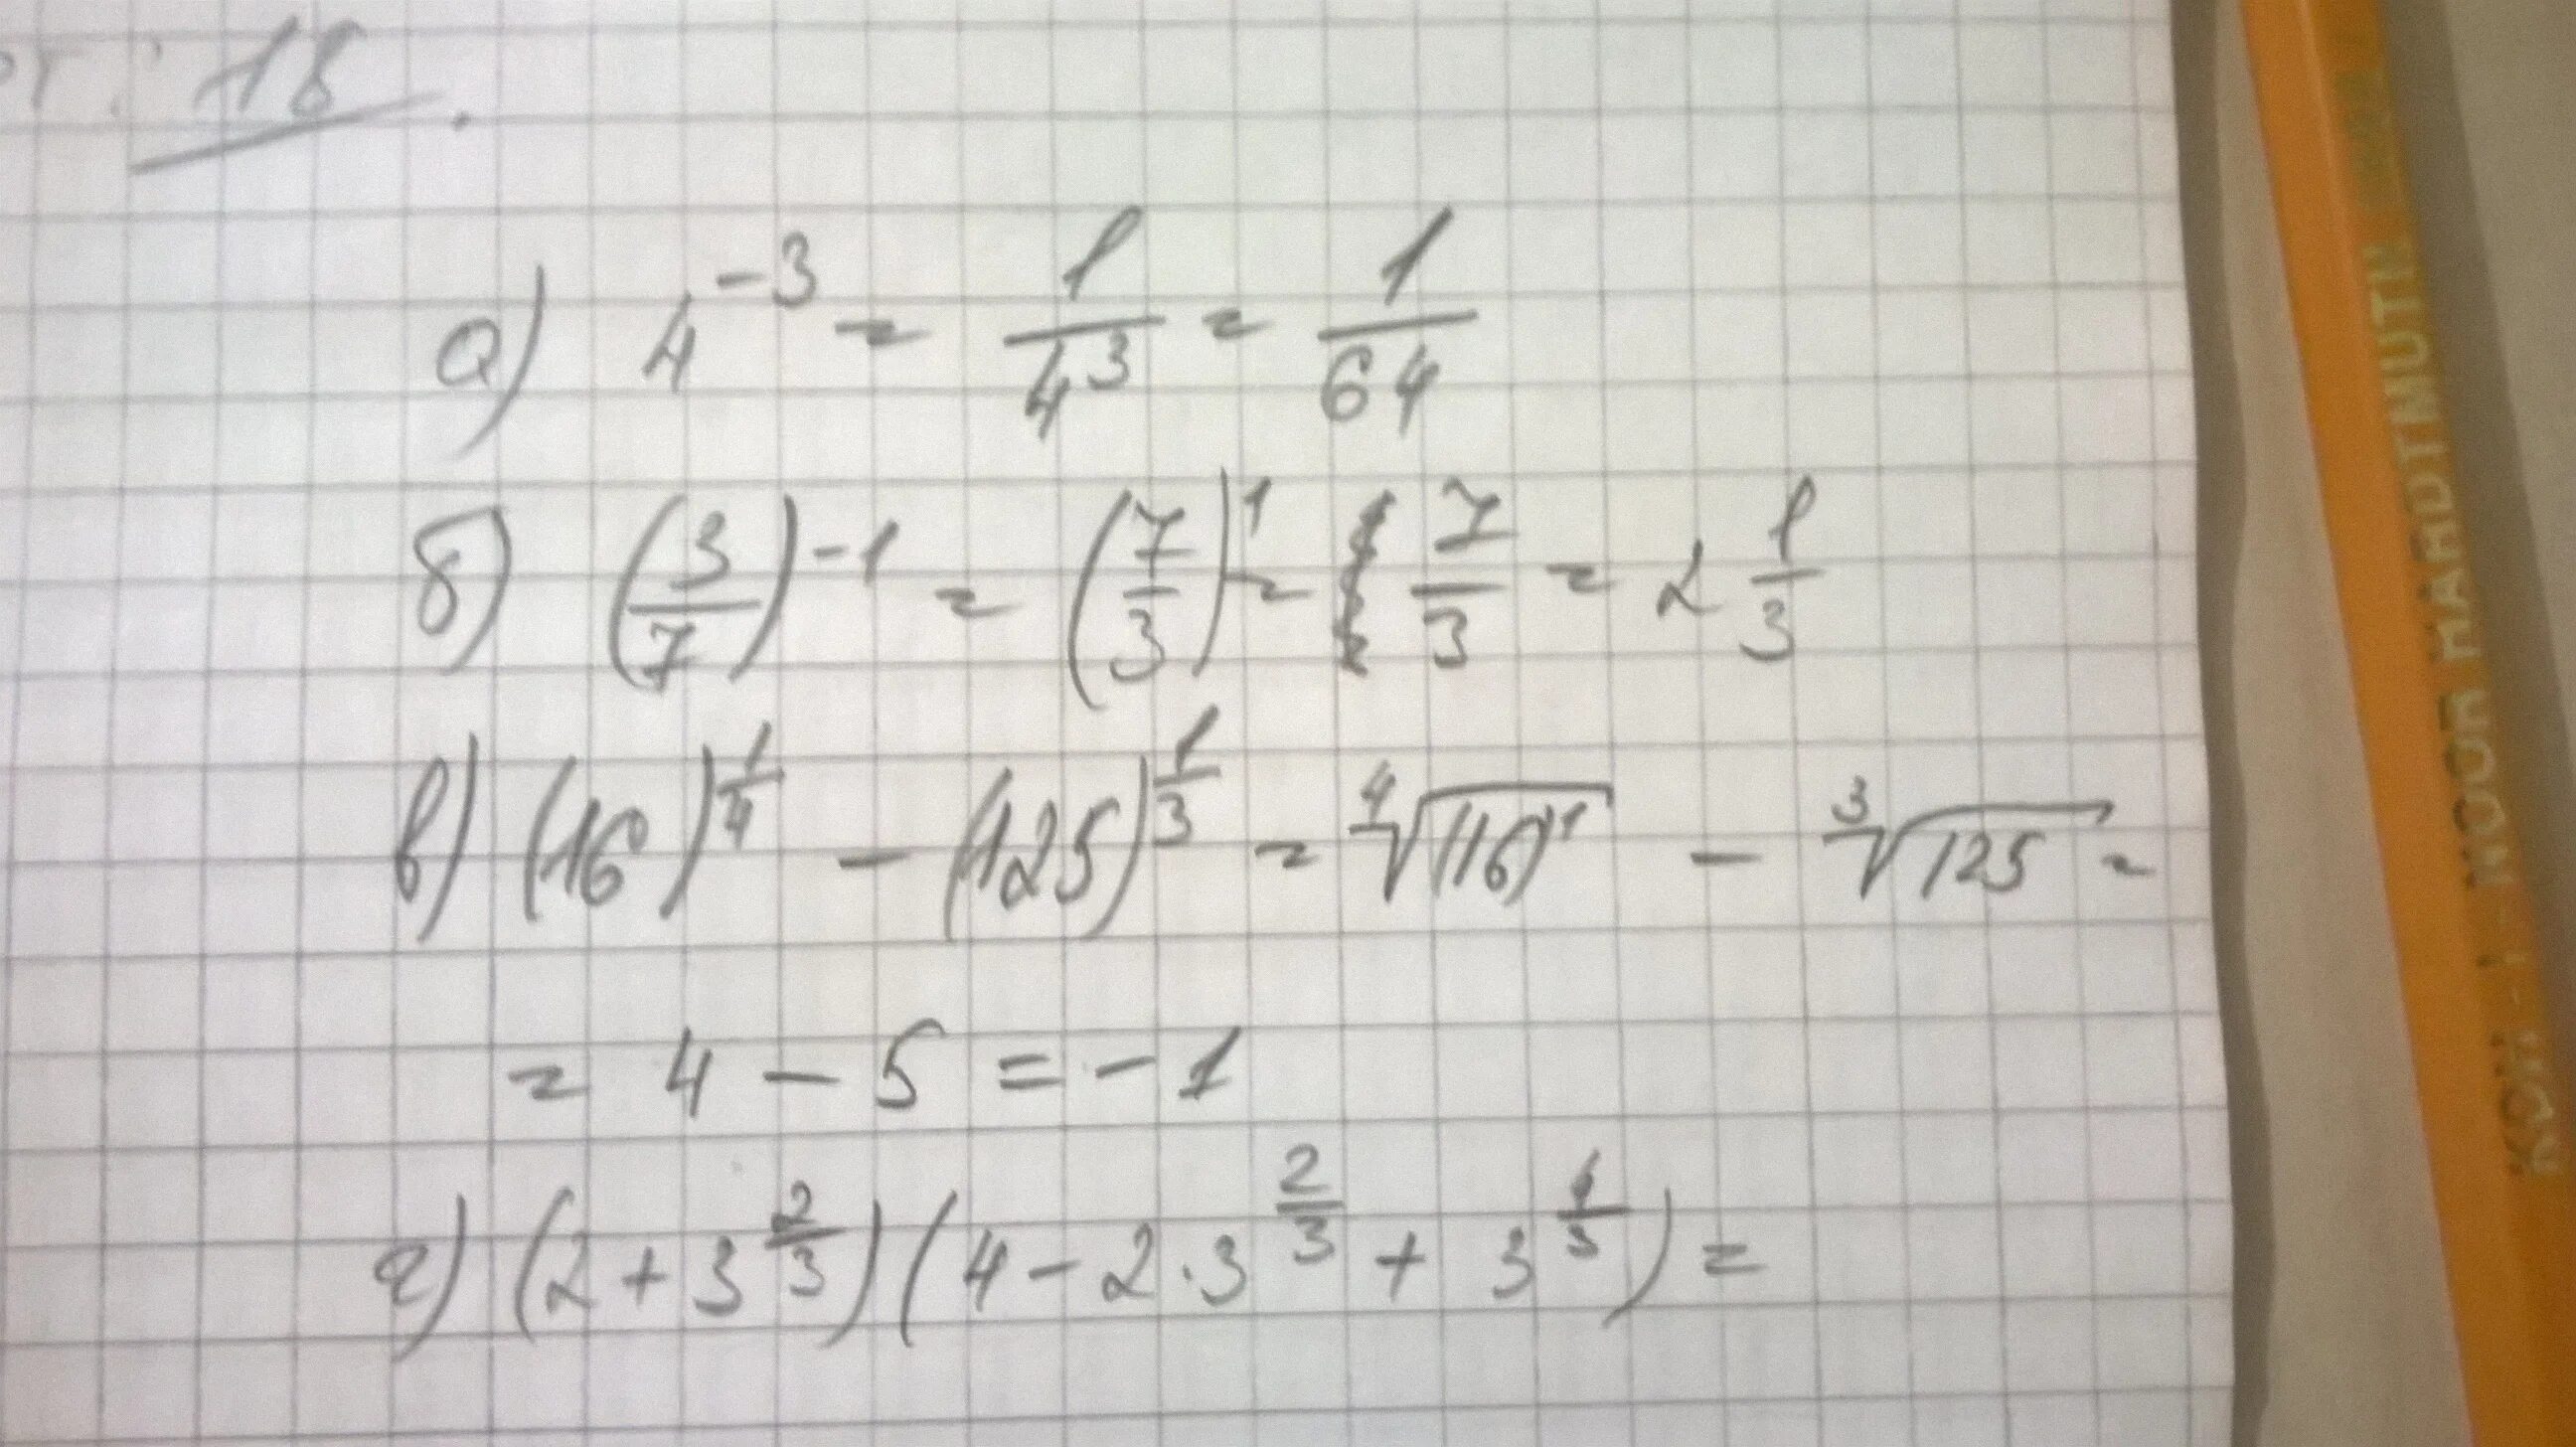 18.
а) 4^{-3} = 1/4^3 = 1/64
б) (3/7)^{-1} = (7/3)^1 = 7/3 = 2 1/3
в) (16)^{1/4} - (125)^{1/3} = ⁴√(16)^1 - ³√125 =
= 4 - 5 = -1
г) (2 + 3^{2/3})(4 - 2·3^{2/3} + 3^{4/3}) =
KOH-I-NOOR HARDTMUTH